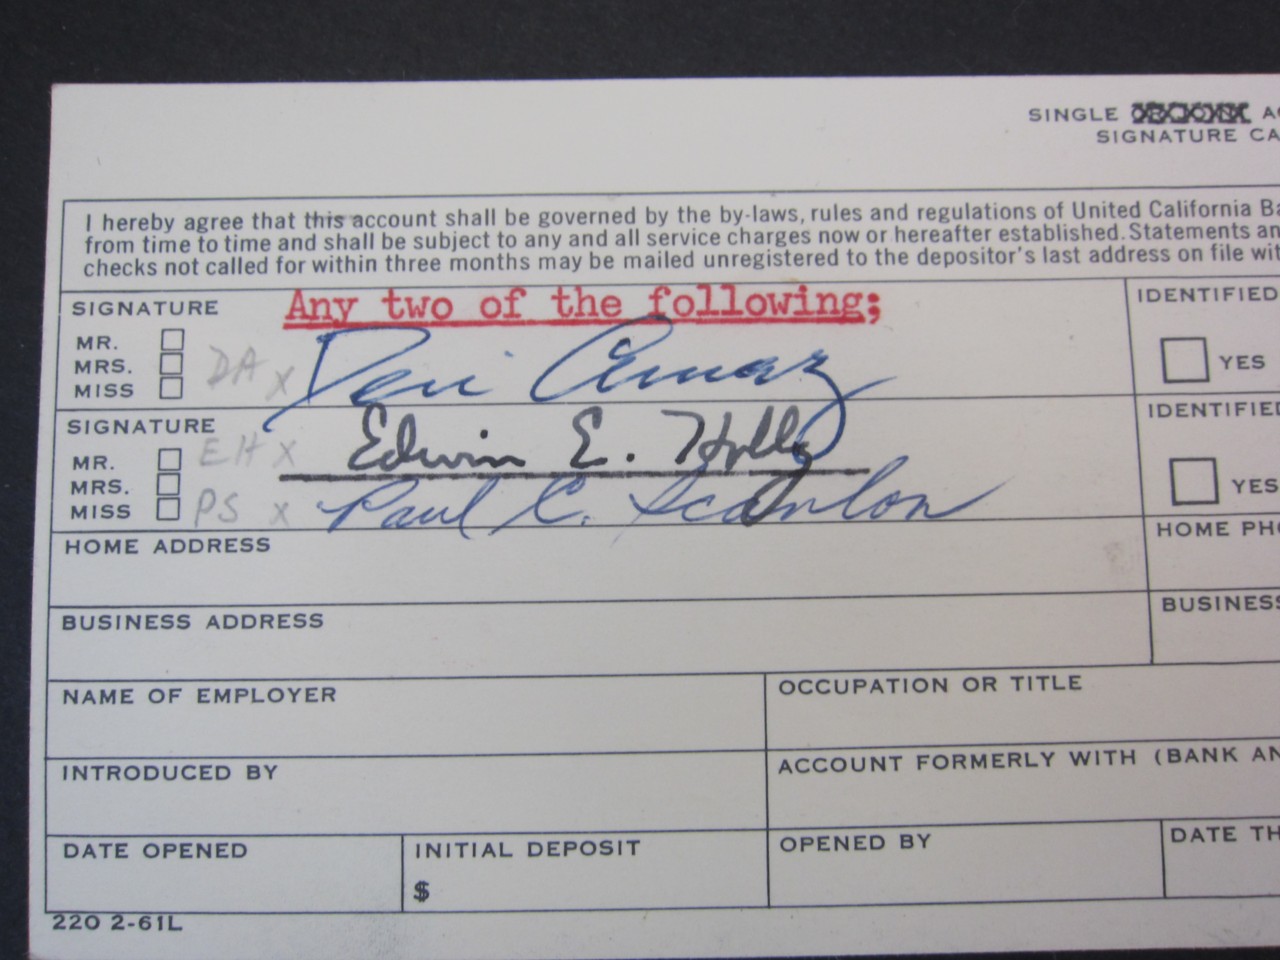 SINGLE
SIGNATURE CA
I hereby agree that this account shall be governed by the by-laws, rules and regulations of United California Ba
from time to time and shall be subject to any and all service charges now or hereafter established. Statements an
checks not called for within three months may be mailed unregistered to the depositor's last address on file wit
SIGNATURE Any two of the following; IDENTIFIED
MR.
MRS. DA x Desi Arnaz YES
MISS
SIGNATURE IDENTIFIED
EH X Edwin E. Holly
MR.
MRS. YES
MISS PS X Paul C. Scanlon
HOME ADDRESS HOME PHO
BUSINESS ADDRESS BUSINESS
NAME OF EMPLOYER OCCUPATION OR TITLE
INTRODUCED BY ACCOUNT FORMERLY WITH (BANK AN
DATE OPENED INITIAL DEPOSIT OPENED BY DATE TH
$
220 2-61L